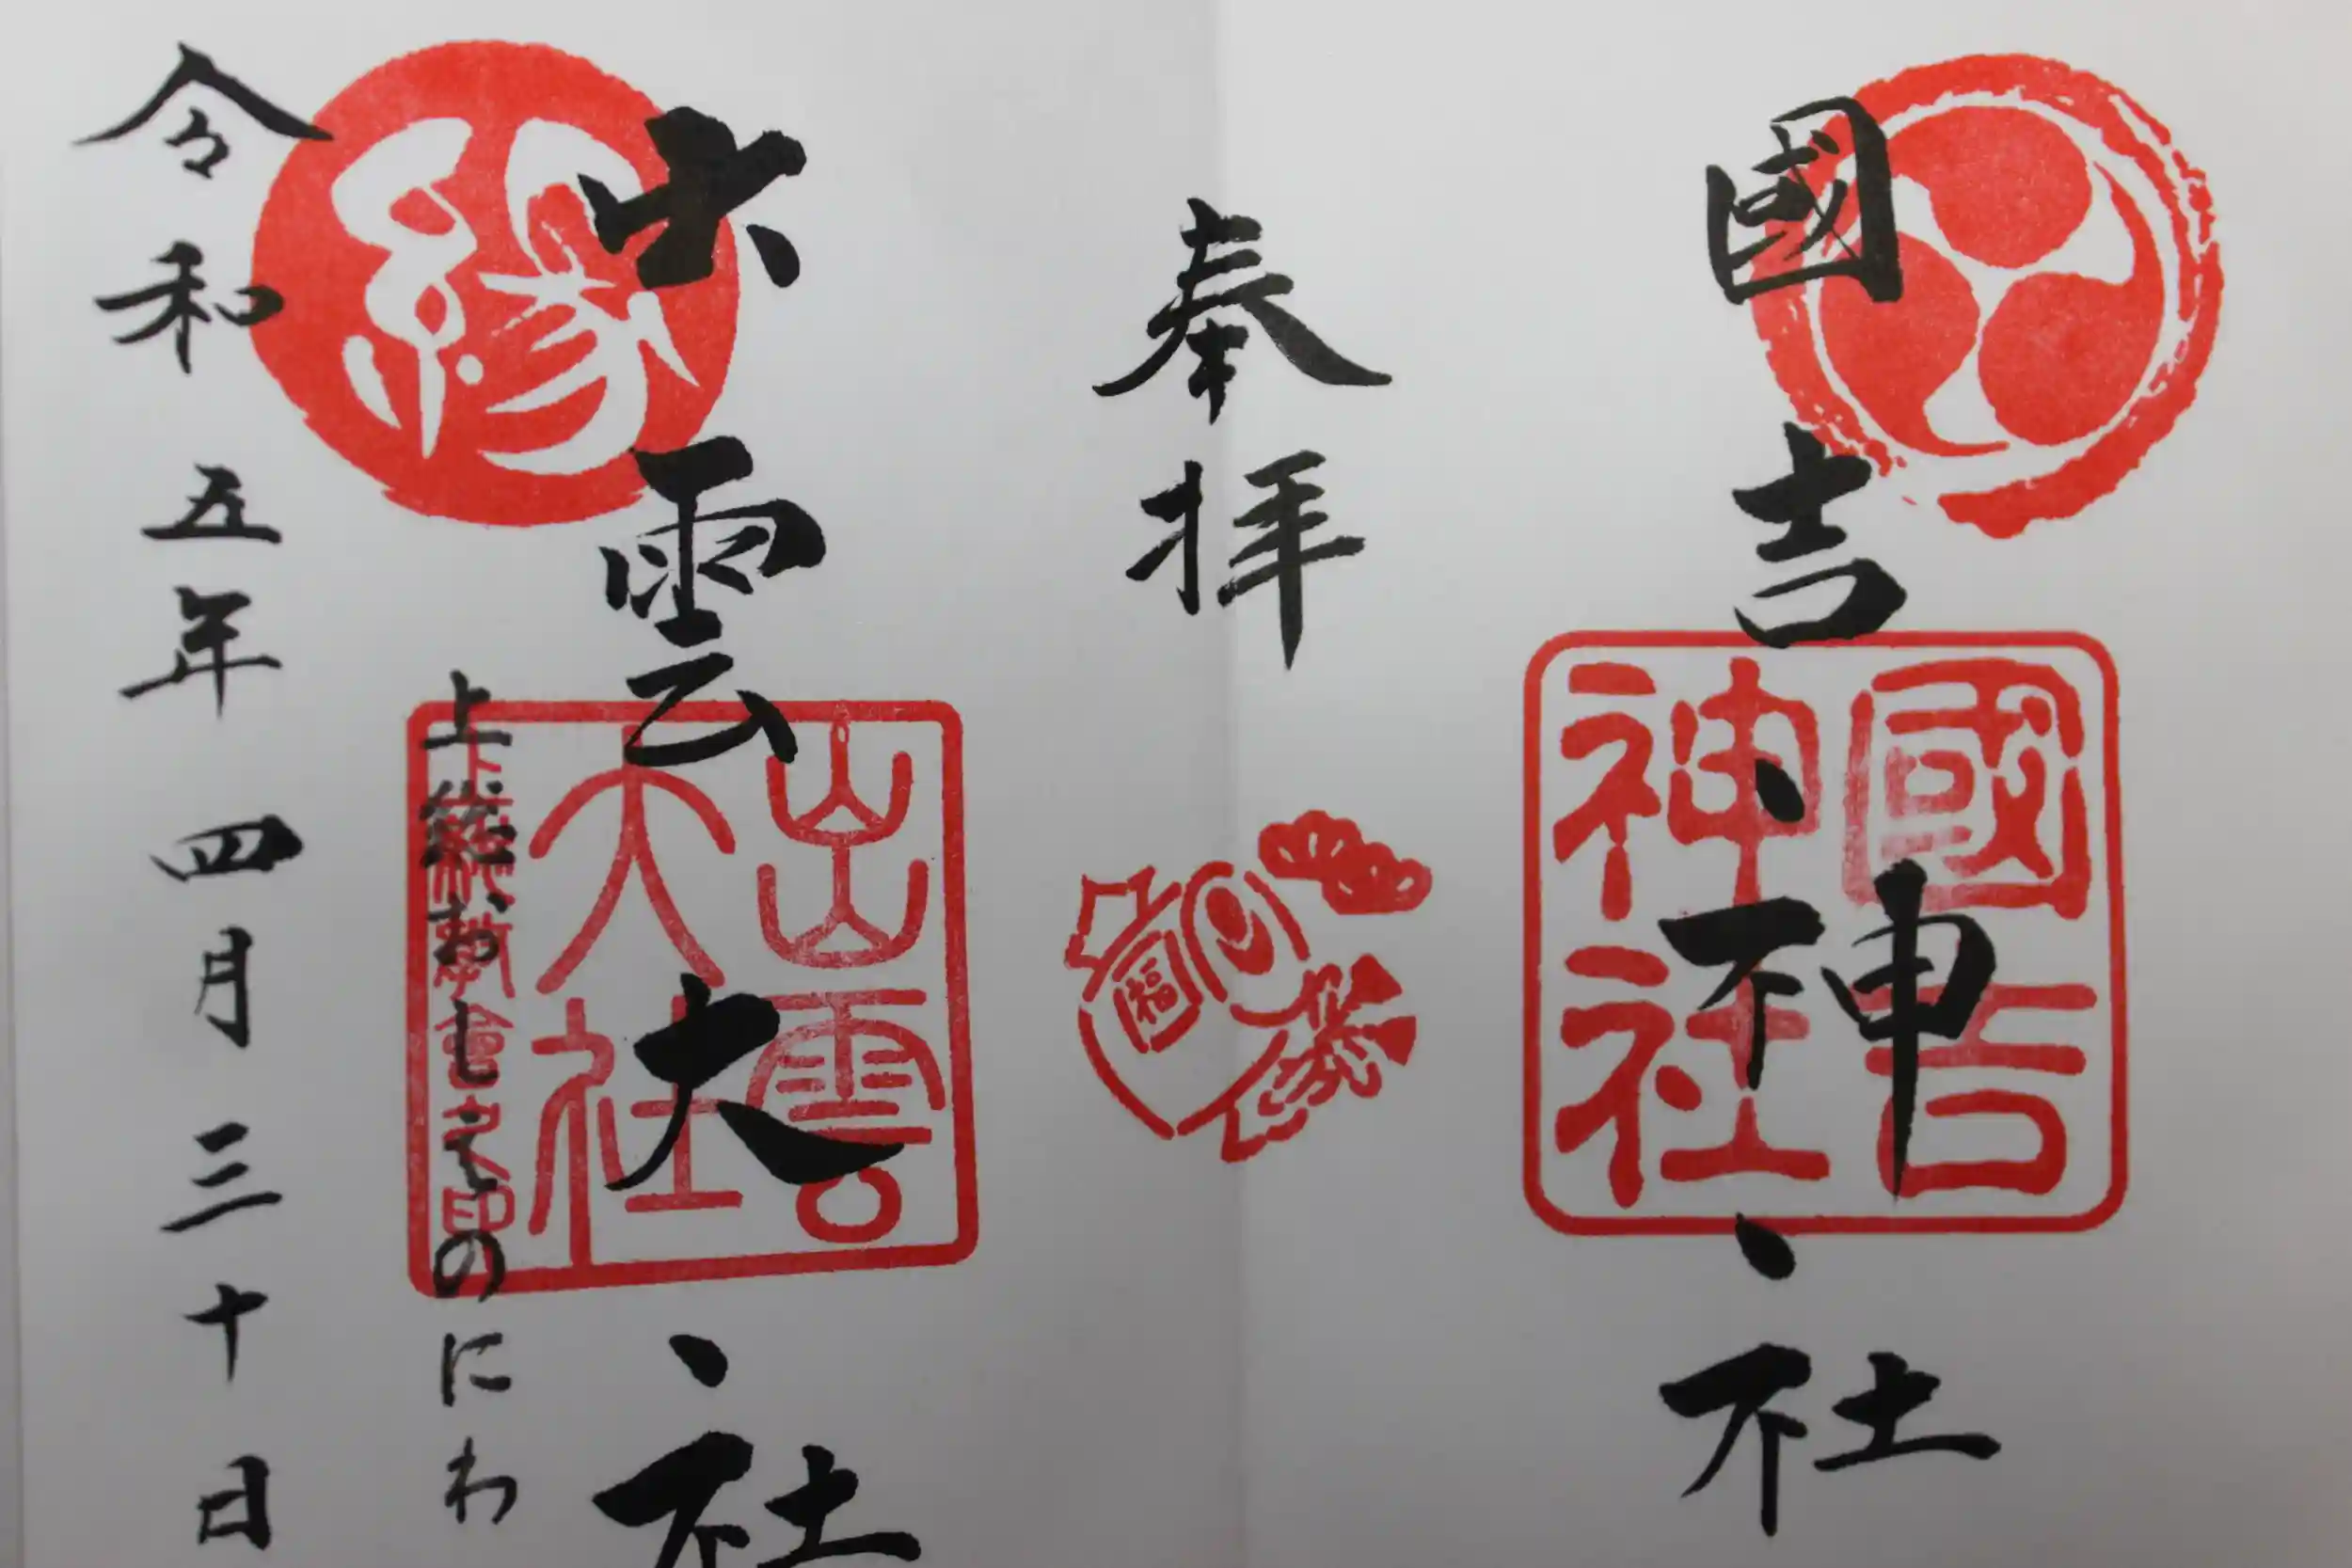 國吉神社
國吉
神社
奉拝
福
出雲大社
縁
出雲
大社
上総教會之印
上総お　しゑのにわ
令和五年四月三十日